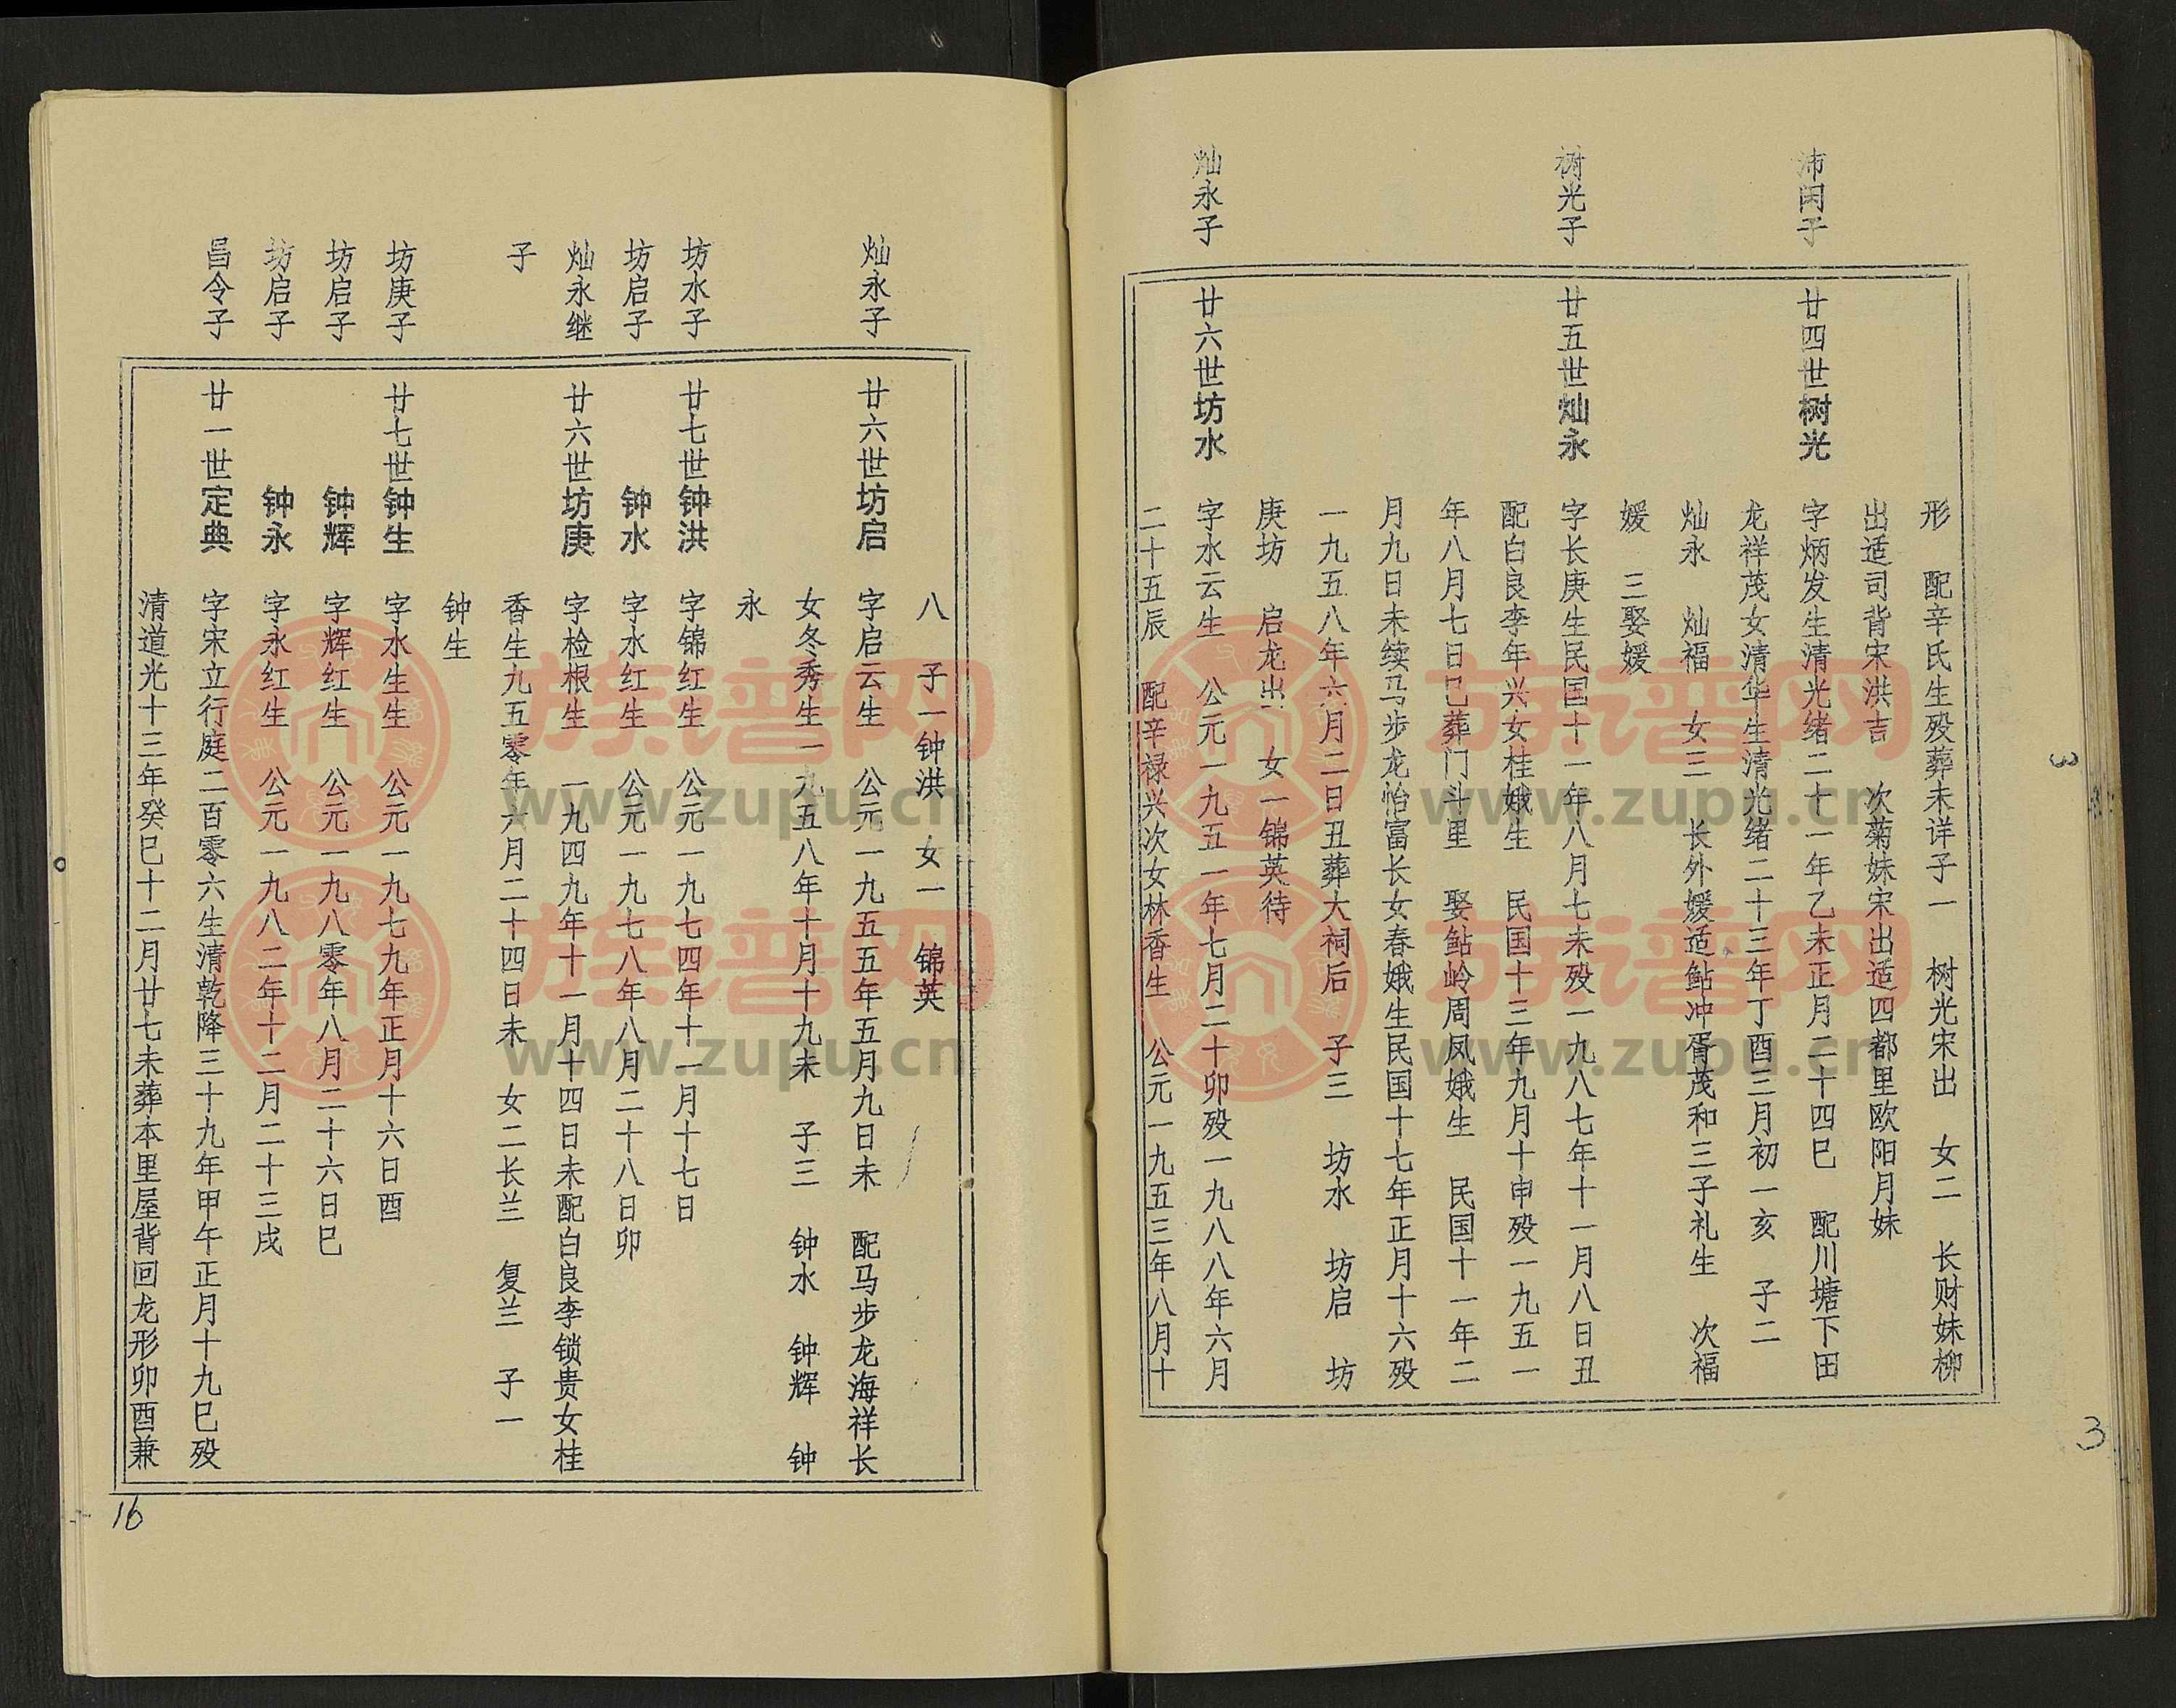 形　配辛氏生殁葬未详子一　树光宋出　女二　长财妹柳
出适司背宋洪吉　次菊妹宋出适四都里欧阳月妹
沛闲子　廿四世树光　字炳发生清光绪二十一年乙未正月二十四巳　配川塘下田
龙祥茂女清华生清光绪二十三年丁酉三月初一亥　子二
灿永　灿福　女三　长外媛适鲇冲胥茂和三子礼生　次福
媛　三娶媛
树光子　廿五世灿永　字长庚生民国十一年八月七未殁一九八七年十一月八日丑
配白良李年兴女桂娥生　民国十三年九月十申殁一九五一
年八月七日巳葬门斗里　娶鲇岭周凤娥生　民国十一年二
月九日未续马步龙怡富长女春娥生民国十七年正月十六殁
一九五八年六月二日丑葬大祠后　子三　坊水　坊启　坊
庚坊　启龙出　女一锦英待
灿永子　廿六世坊水　字水云生　公元一九五一年七月二十卯殁一九八八年六月
二十五辰　配辛禄兴次女林香生　公元一九五三年八月十
3
3
八　子一钟洪　女一　锦英
灿永子　廿六世坊启　字启云生　公元一九五五年五月九日未　配马步龙海祥长
女冬秀生一九五八年十月十九未　子三　钟水　钟辉　钟
永
坊水子　廿七世钟洪　字锦红生　公元一九七四年十一月十七日
坊启子　钟水　字水红生　公元一九七八年八月二十八日卯
灿永继　廿六世坊庚　字检根生　一九四九年十一月十四日未配白良李锁贵女桂
子　香生九五零年六月二十四日未　女二长兰　复兰　子一
钟生
坊庚子　廿七世钟生　字水生生　公元一九七九年正月十六日酉
坊启子　钟辉　字辉红生　公元一九八零年八月二十六日巳
坊启子　钟永　字永红生　公元一九八二年十二月二十三戌
昌令子　廿一世定典　字宋立行庭二百零六生清乾降三十九年甲午正月十九巳殁
清道光十三年癸巳十二月廿七未葬本里屋背回龙形卯酉兼
16
族谱网
www.zupu.cn
族谱网
www.zupu.cn
族谱网
www.zupu.cn
族谱网
www.zupu.cn